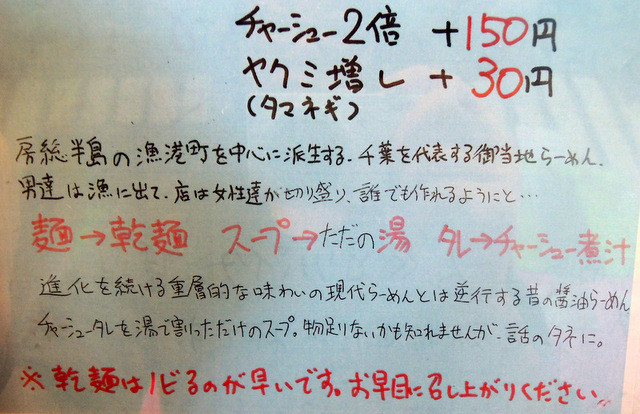 チャーシュー2倍 +150円
ヤクミ増し +30円
(タマネギ)
房総半島の漁港町を中心に派生する、千葉を代表する御当地らーめん。
男達は漁に出て、店は女性達が切り盛り、誰でも作れるようにと…
麺→乾麺 スープ→ただの湯 タレ→チャーシュー煮汁
進化を続ける重層的な味わいの現代らーめんとは逆行する昔の醤油らーめん
チャーシュータレを湯で割っただけのスープ。物足りないかも知れませんが、話のタネに。
※乾麺はノビるのが早いです。お早目に召し上がりください